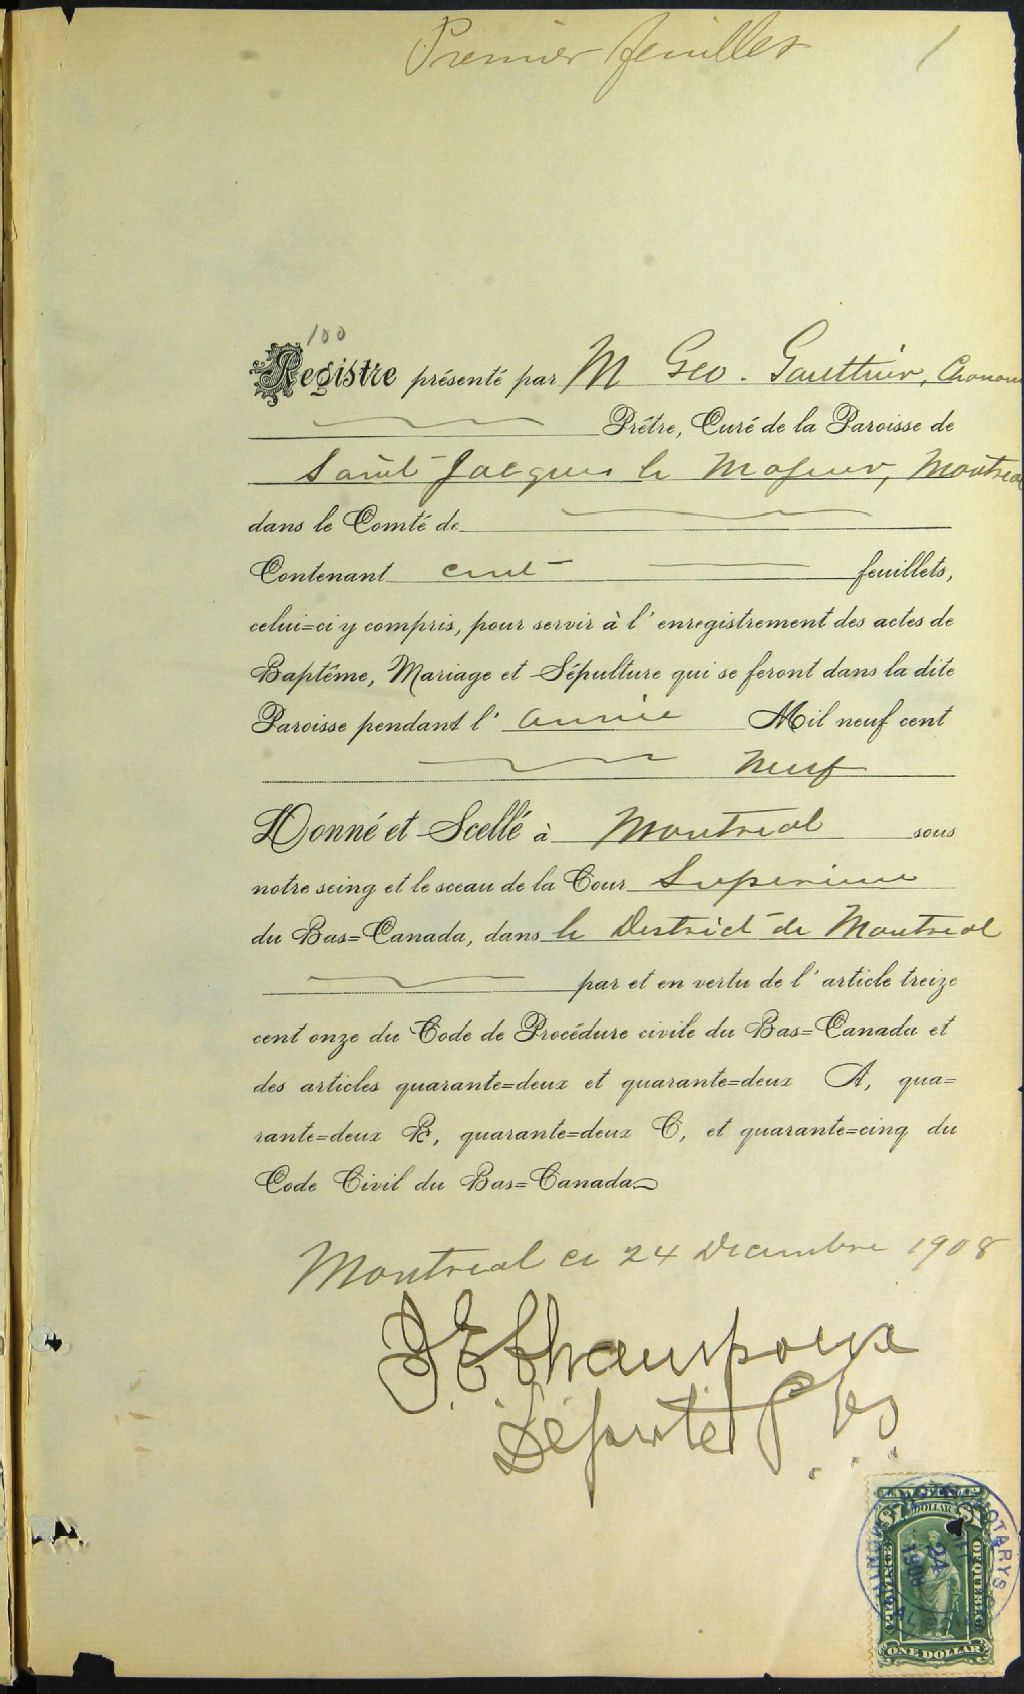 Premier feuillet 1
100
Registre présenté par M Geo. Gauthier, Chanoine
Prêtre, Curé de la Paroisse de
Saint Jacques le Majeur, Montreal
dans le Comté de
Contenant cent feuillets,
celui=ci y compris, pour servir à l'enregistrement des actes de
Baptême, Mariage et Sépulture qui se feront dans la dite
Paroisse pendant l'année Mil neuf cent
neuf
Donné et Scellé à Montreal sous
notre seing et le sceau de la Cour Superieure
du Bas=Canada, dans le District de Montreal
par et en vertu de l'article treize
cent onze du Code de Procédure civile du Bas=Canada et
des articles quarante=deux et quarante=deux A, qua=
rante=deux B, quarante=deux C, et quarante=cinq du
Code Civil du Bas=Canada
Montreal ce 24 Decembre 1908
Député P
LAW STAMP
$1 DOLLAR $1
PROVINCE OF QUEBEC
24
1908
ONE DOLLAR